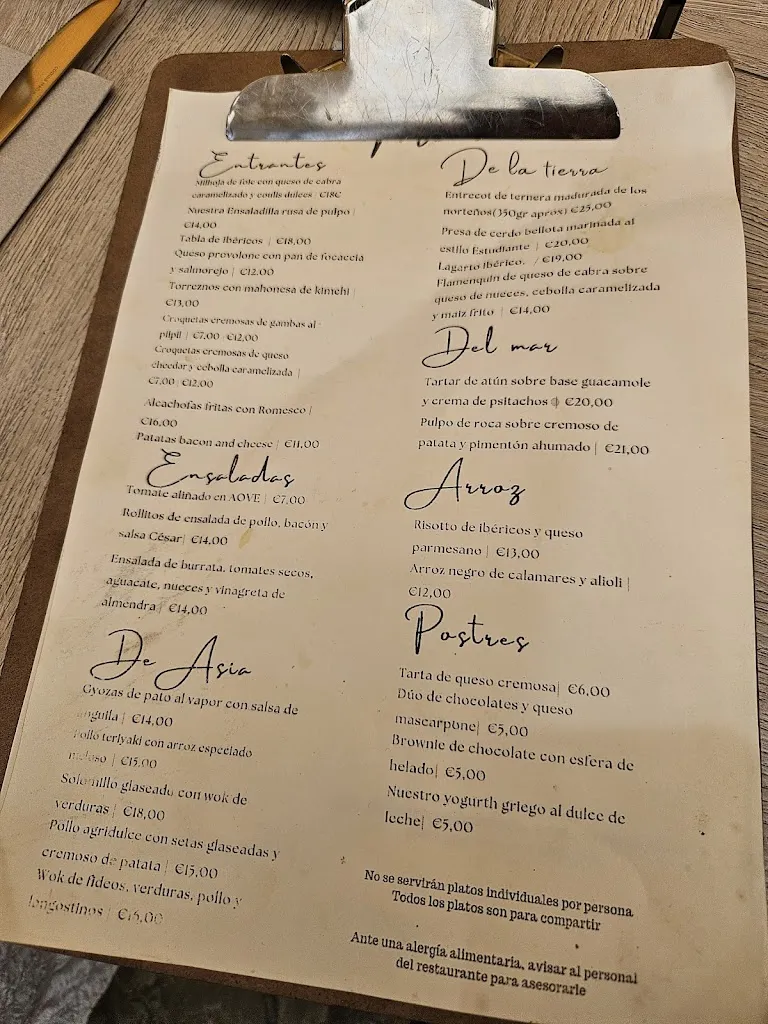 Entrantes
Milhoja de foie con queso de cabra
caramelizado y coulis dulces | €18€
Nuestra Ensaladilla rusa de pulpo |
€14,00
Tabla de ibéricos | €18,00
Queso provolone con pan de focaccia
y salmorejo | €12.00
Torreznos con mahonesa de kimchi |
€13,00
Croquetas cremosas de gambas al
pilpil | €7.00 €12,00
Croquetas cremosas de queso
cheedar y cebolla caramelizada |
€7.00 €12.00
Alcachofas fritas con Romesco |
€16.00
Patatas bacon and cheese | €11.00
Ensaladas
Tomate aliñado en AOVE | €7.00
Rollitos de ensalada de pollo, bacón y
salsa César| €14.00
Ensalada de burrata, tomates secos,
aguacate, nueces y vinagreta de
almendra | €14,00
De Asia
Gyozas de pato al vapor con salsa de
anguila | €14,00
Pollo teriyaki con arroz especiado
meloso | €15.00
Solomillo glaseado con wok de
verduras | €18,00
Pollo agridulce con setas glaseadas y
cremoso de patata | €15,00
Wok de fideos, verduras, pollo y
langostinos |
De la tierra
Entrecot de ternera madurada de los
norteños(350gr aprox) €25,00
Presa de cerdo bellota marinada al
estilo Estudiante | €20,00
Lagarto ibérico. / €19,00
Flamenquín de queso de cabra sobre
queso de nueces, cebolla caramelizada
y maiz frito | €14,00
Del mar
Tartar de atún sobre base guacamole
y crema de psitachos | €20,00
Pulpo de roca sobre cremoso de
patata y pimentón ahumado | €21,00
Arroz
Risotto de ibéricos y queso
parmesano | €13,00
Arroz negro de calamares y alioli |
€12,00
Postres
Tarta de queso cremosa| €6,00
Dúo de chocolates y queso
mascarpone| €5,00
Brownie de chocolate con esfera de
helado| €5,00
Nuestro yogurth griego al dulce de
leche| €5,00
No se servirán platos individuales por persona
Todos los platos son para compartir
Ante una alergía alimentaria, avisar al personal
del restaurante para asesorarle